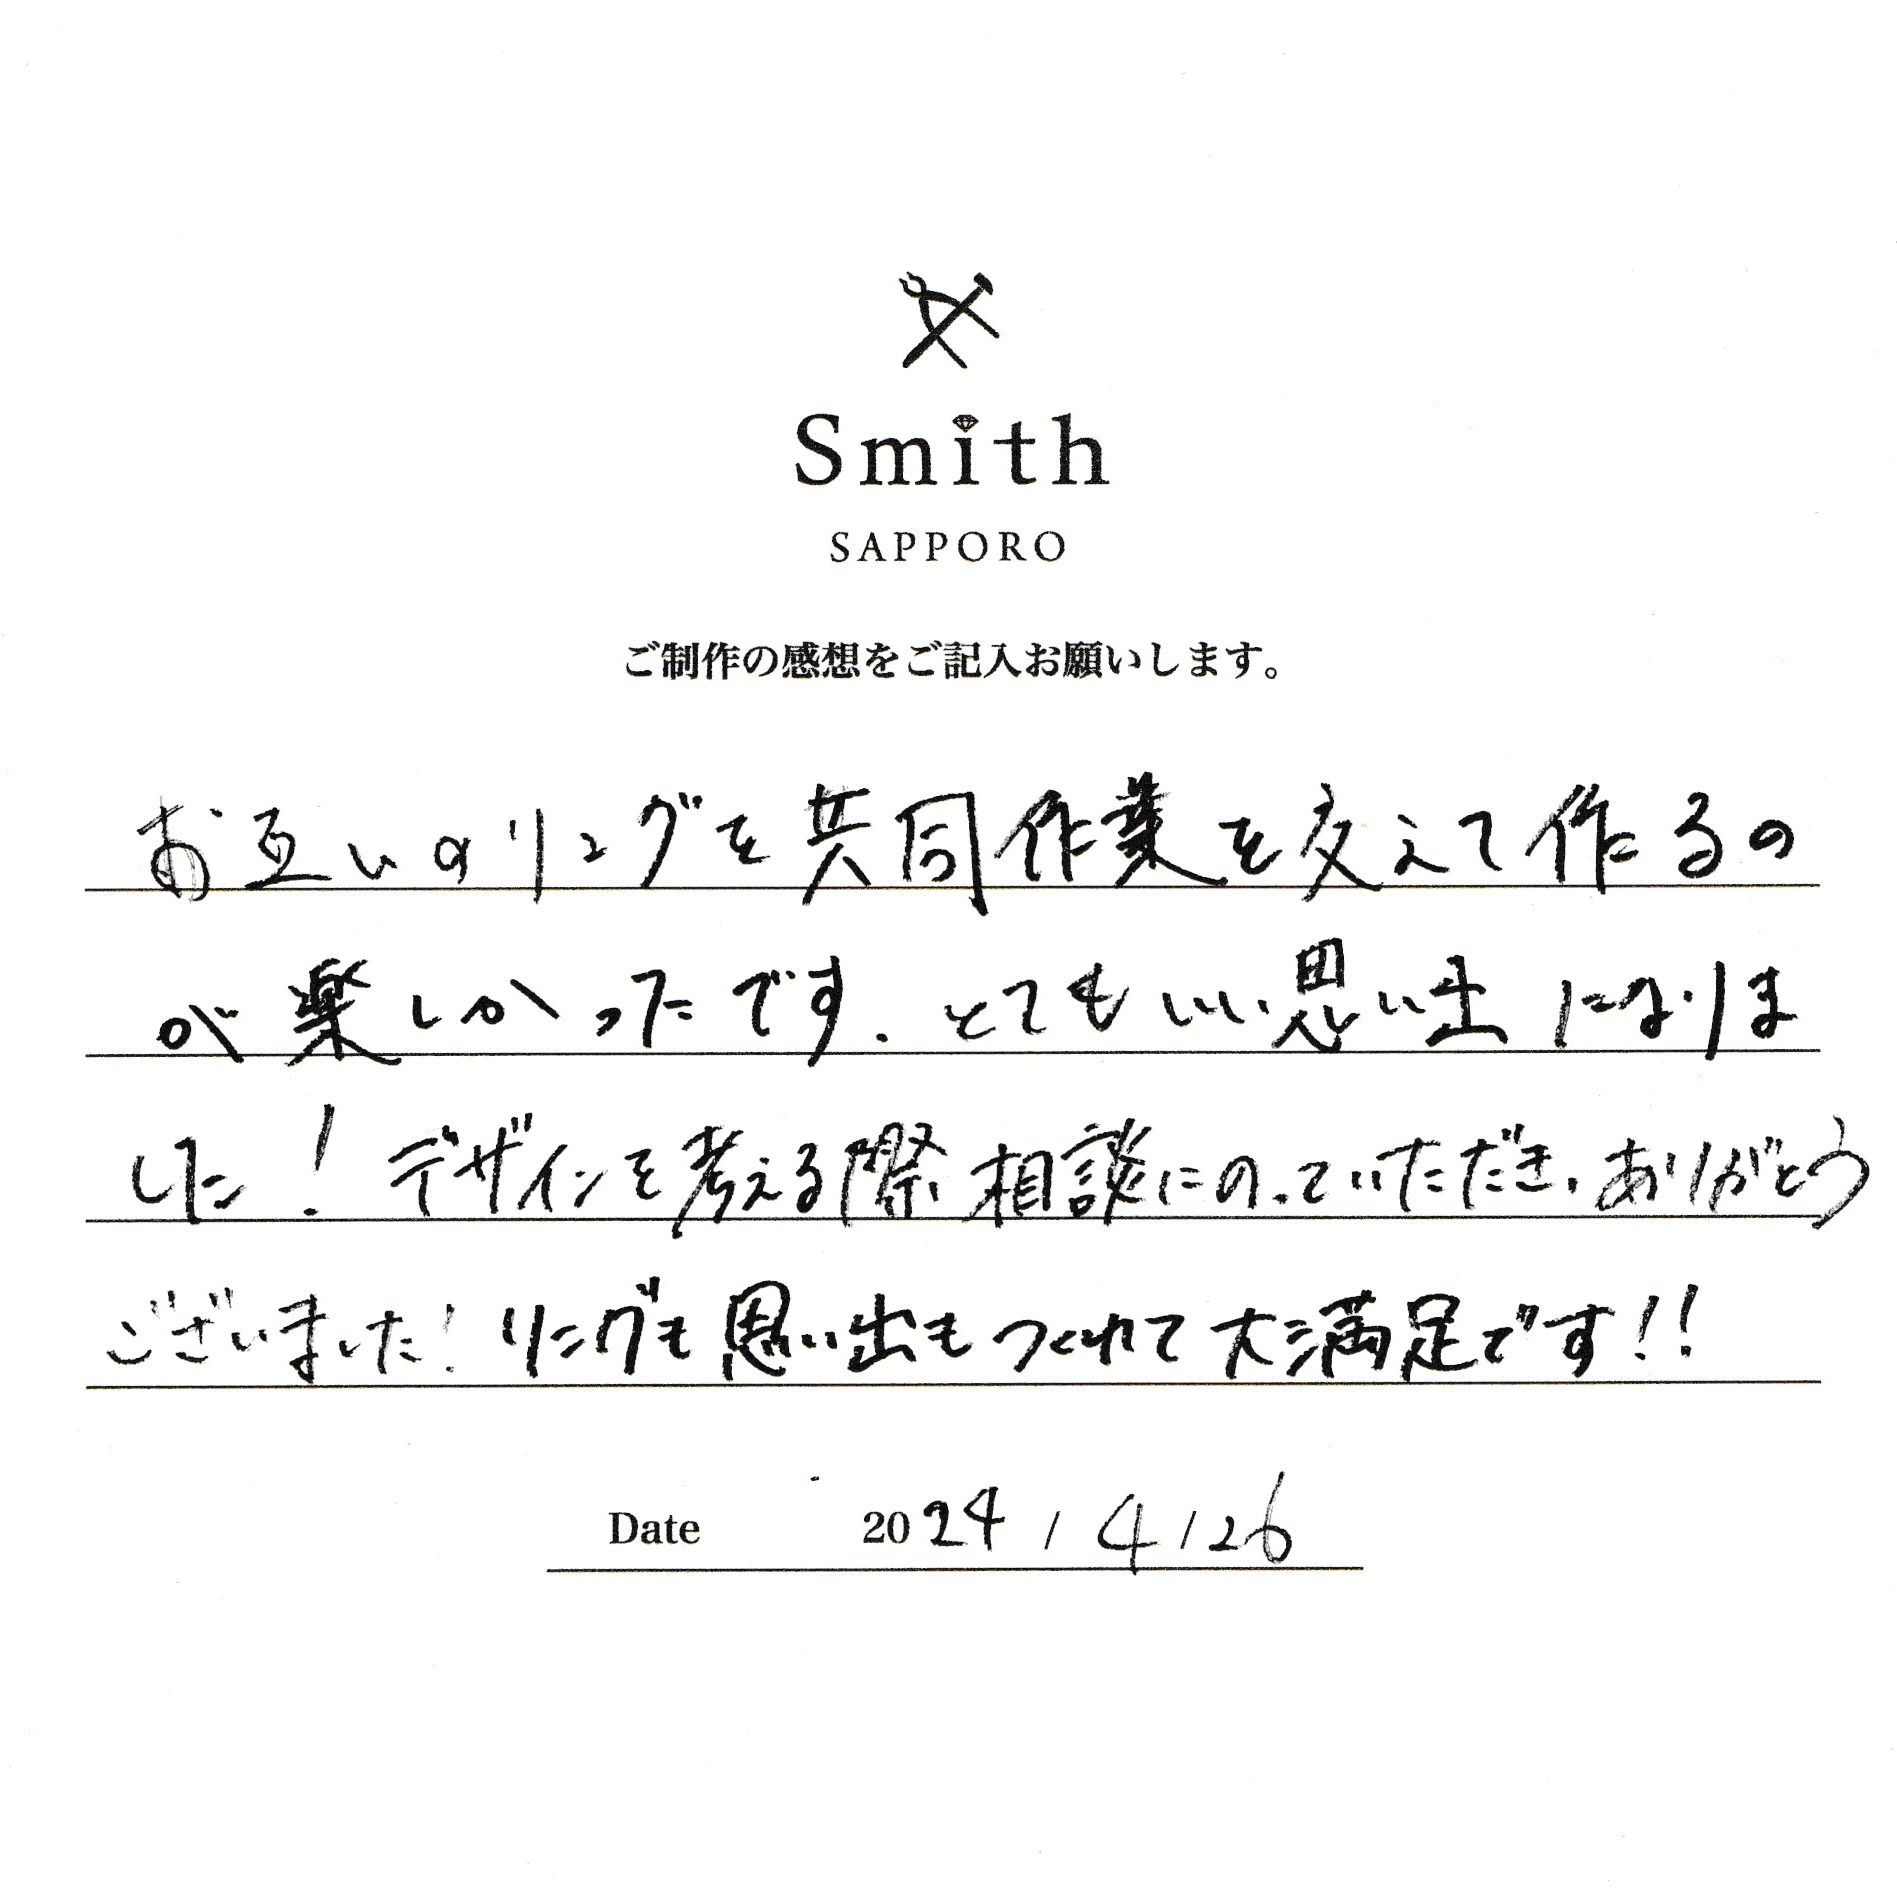 Smith
SAPPORO
ご制作の感想をご記入お願いします。
お互いのリングを共同作業を交えて作るの
が楽しかったです.とてもいい思い出になりま
した!デザインを考える際相談にのっていただき、ありがとう
ございました!リングも思い出もつくれて大満足です!!
Date 2024/4/26